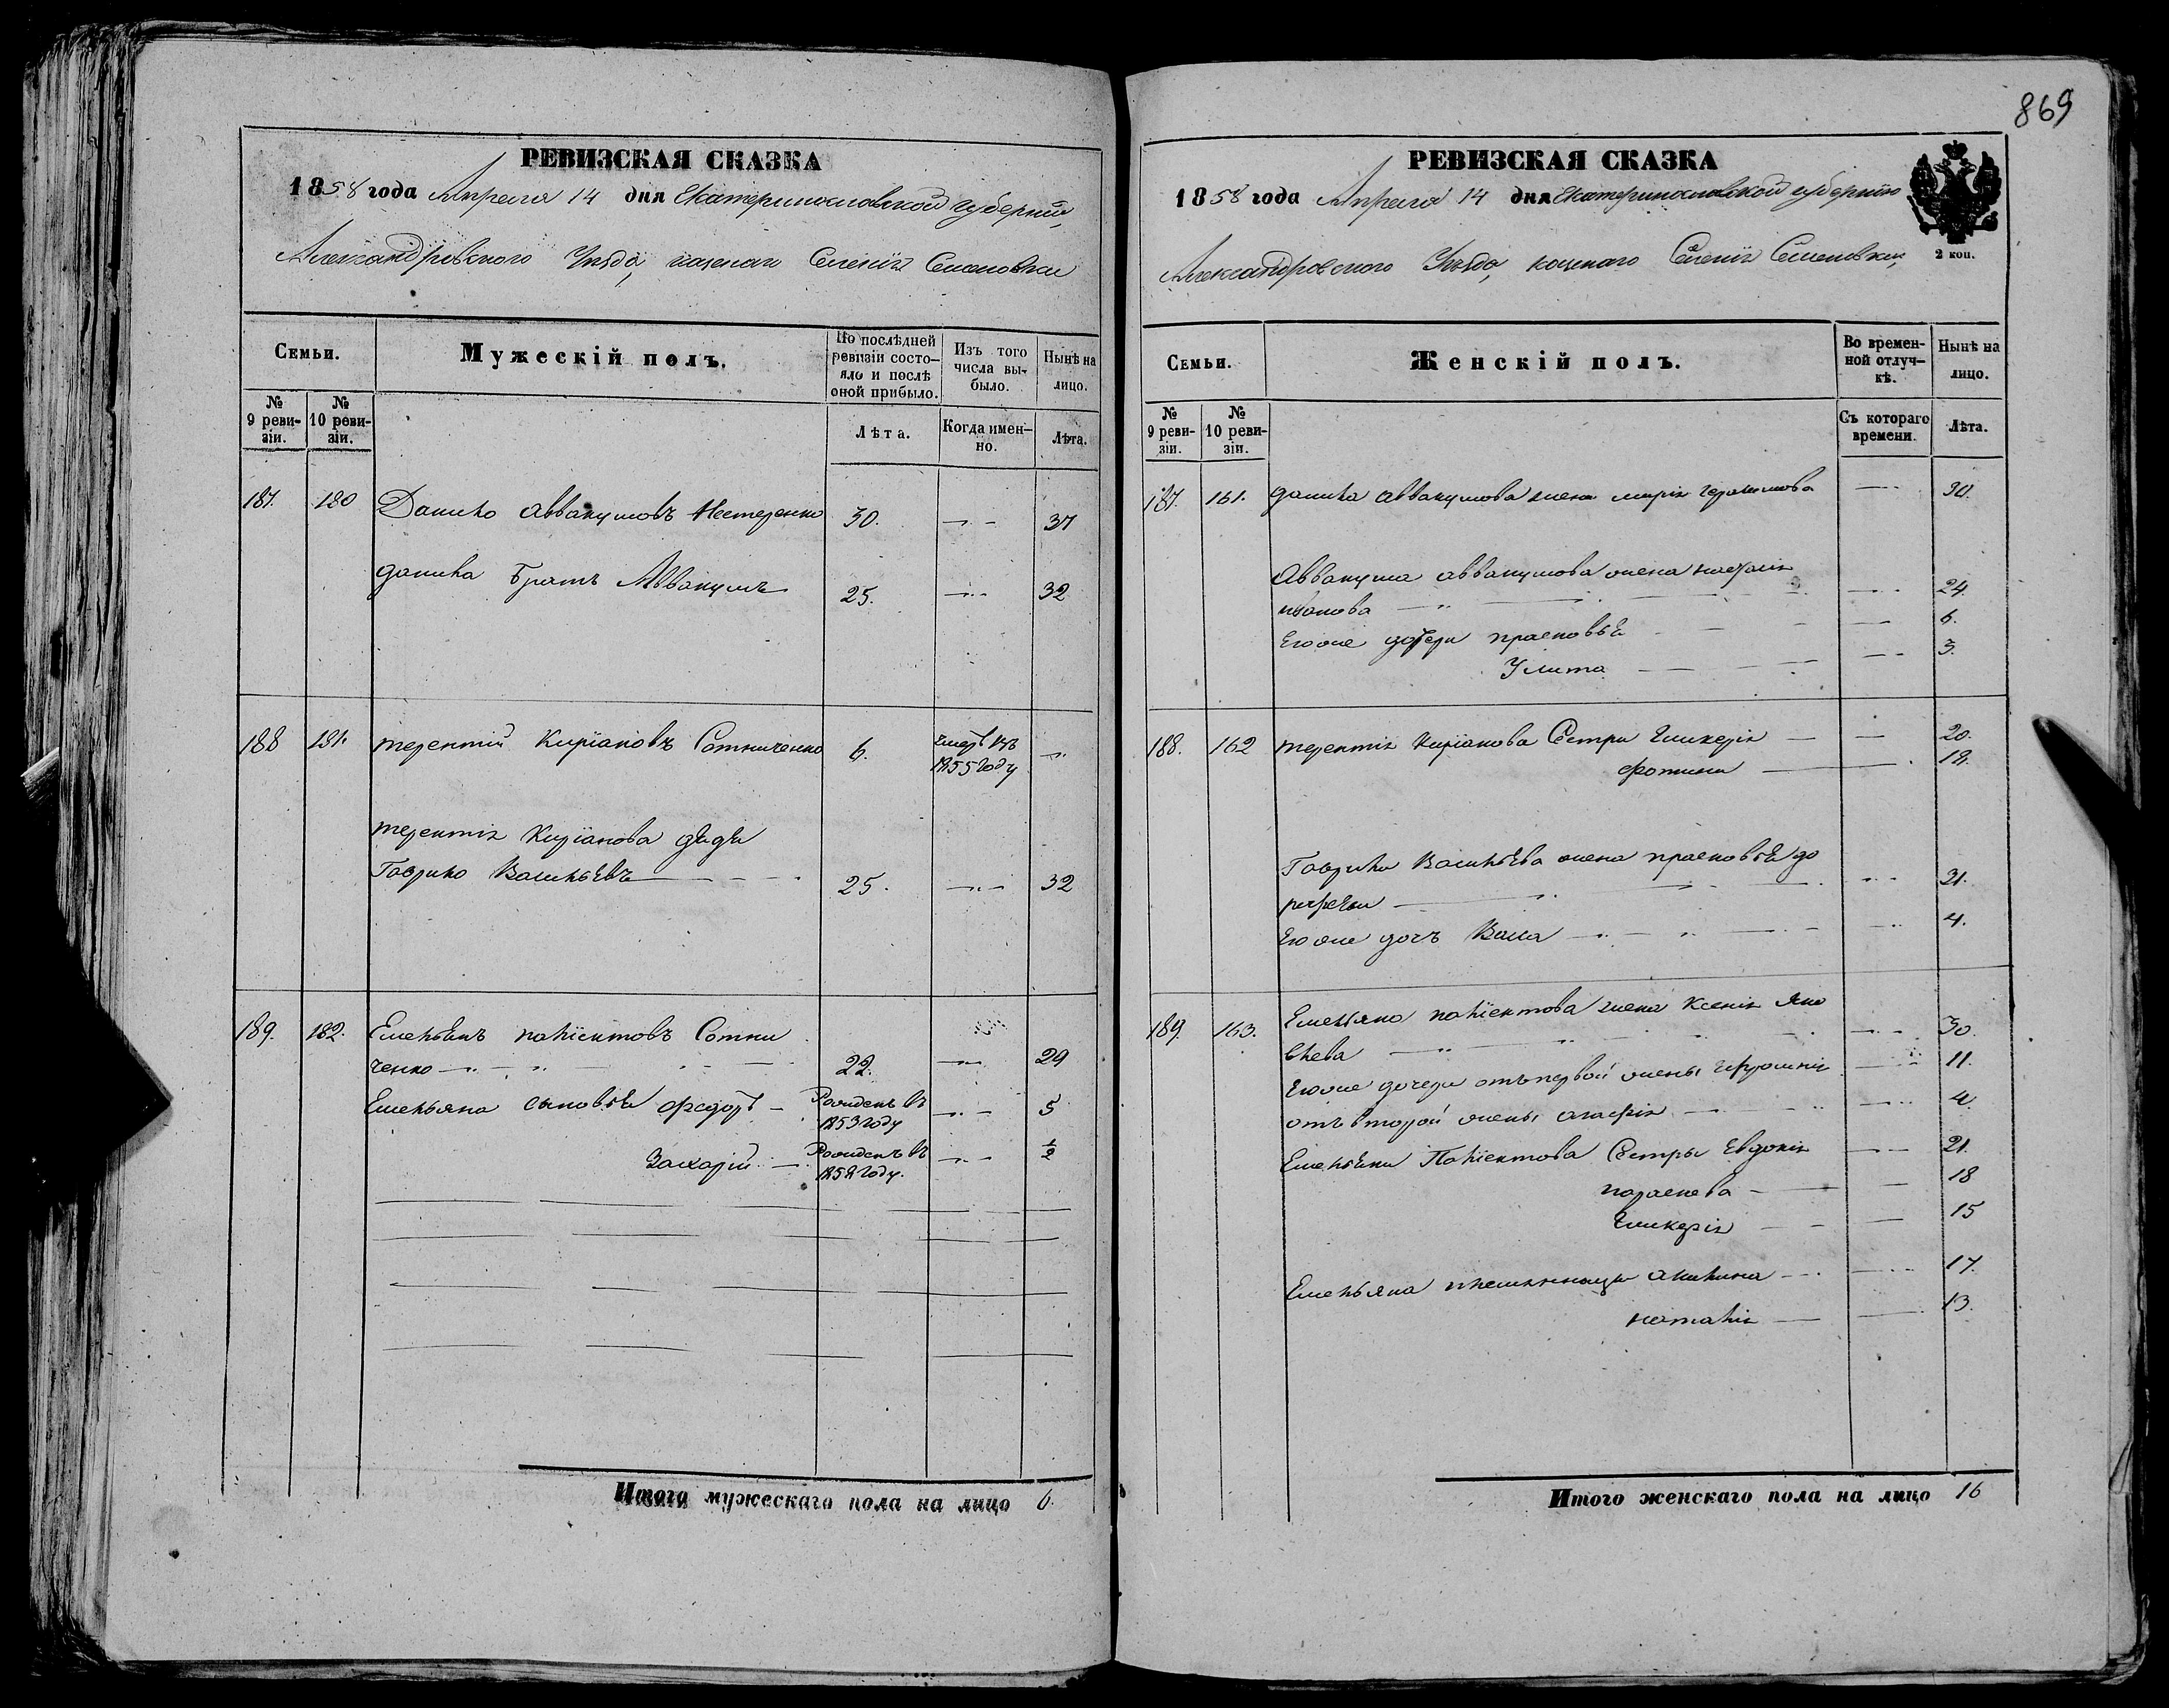 РЕВИЗСКАЯ СКАЗКА
1858 года Апреля 14 дня Екатеринославской губернии,
Александровского Уезда, казенаго Селенія Семеновки
Семьи.
Мужескій полъ.
По послѣдней ревизіи состо-
яло и послѣ оной прибыло.
Изъ того числа вы-
было.
Нынѣ на лицо.
№ 9 реви-
зіи.
№ 10 реви-
зіи.
Лѣта.
Когда имен-
но.
Лѣта.
187. 180 Данило Аввакумовъ Нестеренко 30. 37
Данила братъ Аввакумъ 25. 32
188 181. терентій Киріановъ Сотниченко 6. умеръ въ
1855 году
терентія Киріанова дядя
Гаврило Васильевъ 25. 32
189. 182. Емельянъ полиіектовъ Сотни
ченко 22. 29
Емельяна сыновья федоръ Рожденъ въ 5
1853 году
Захарій Рожденъ въ 1/2
1858 году.
Итого мужескаго пола на лицо 6.
869
РЕВИЗСКАЯ СКАЗКА
1858 года Апреля 14 дня Екатеринославской губернии
Александровского Уезда, казенаго Селенія Семеновки,
2 коп.
Семьи.
Женскій полъ.
Во времен-
ной отлуч-
кѣ.
Нынѣ на лицо.
№ 9 реви-
зіи.
№ 10 реви-
зіи.
Съ котораго времени.
Лѣта.
187. 161. Данила Аввакумова жена марія герасимова 30.
Аввакума аввакумова жена
иванова 24.
Егоже дочери прасковья 6.
Улита 3.
188. 162 терентія Киріанова Сестры Гликерія 20.
фотинья 18.
Гаврила Васильева жена прасковья до
рофеева 31.
Егоже дочь Васса 4.
189. 163. Емельяна полиіектова жена Ксенія Яко
влева 30.
Егоже дочери отъ первой жены 11.
отъ второй жены агафія 4.
Емельяна Поліектова Сестры Евдокія 21.
параскева 18
Гликерія 15
Емельяна племянницы акилина 17.
наталія 13.
Итого женскаго пола на лицо 16